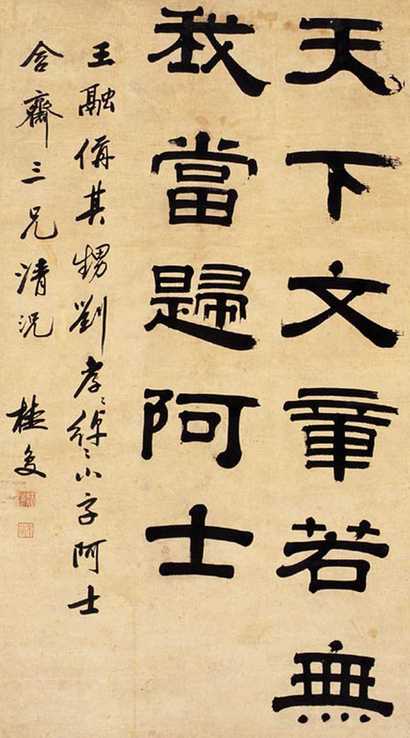 天下文章若無
我當歸阿士
王融偁其甥劉孝〻綽〻小字阿士
齋三兄清況
桂馥